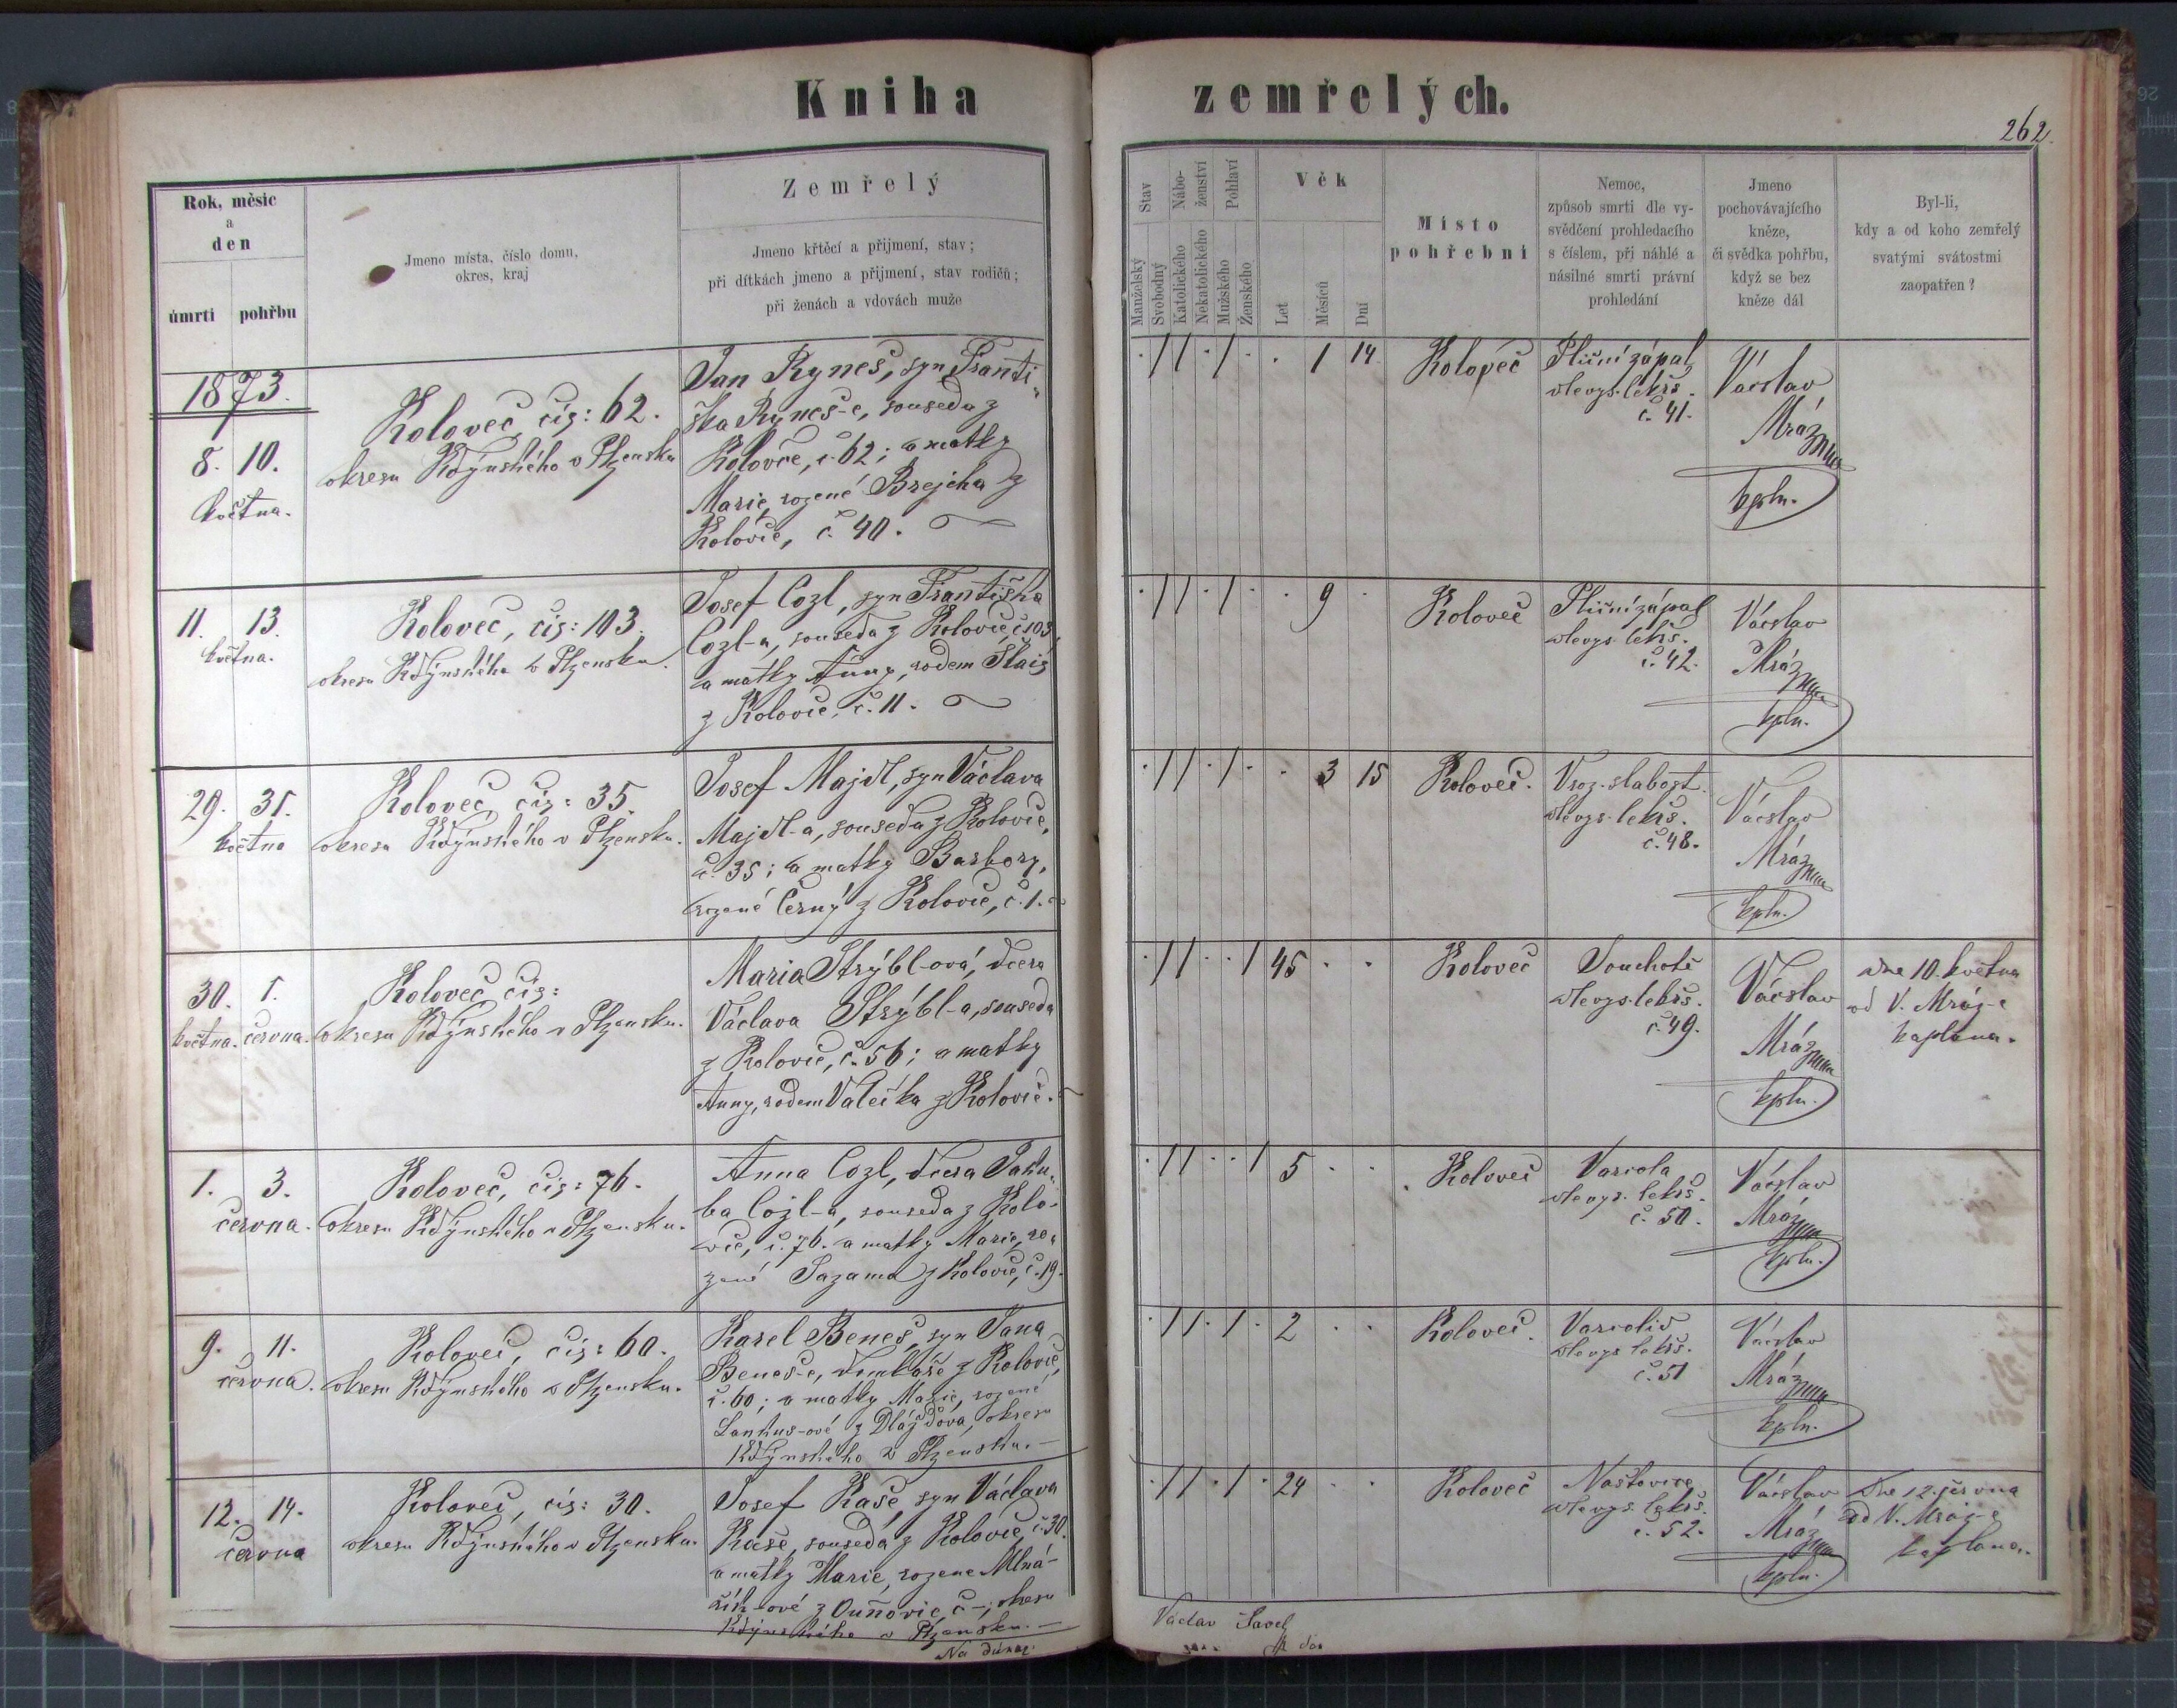 Kniha zemřelých.
262.
Rok, měsíc
a
den
úmrtí pohřbu
Jmeno místa, číslo domu,
okres, kraj
Zemřelý
Jmeno křtěcí a příjmení, stav;
při dítkách jmeno a příjmení, stav rodičů;
při ženách a vdovách muže
Stav
Manželský
Svobodný
Náboženství
Katolického
Nekatolického
Pohlaví
Mužského
Ženského
Věk
Let
Měsíců
Dní
Místo
pohřební
Nemoc,
způsob smrti dle vy-
svědčení prohledacího
s číslem, při náhlé a
násilné smrti právní
prohledání
Jmeno
pochovávajícího
kněze,
či svědka pohřbu,
když se bez
kněze dál
Byl-li,
kdy a od koho zemřelý
svatými svátostmi
zaopatřen?
1873.
8. 10.
května.
Koloveč, čís: 62.
okresu Kdýnského v Plzensku
Jan Ryneš, syn Franti-
ška Ryneš-e, souseda z
Kolovče, č. 62; a matky
Marie, rozené Brejcha z
Kolovče, č. 40.
. / / . / . . 1 14.
Koloveč
Plicní zápal
dle vys. lékř.
č. 41.
Václav
Mráz
kpln.
11. 13.
května.
Koloveč, čís: 103.
okresu Kdýnského v Plzensku.
Josef Cozl, syn Františka
Cozl-a, souseda z Kolovče, č. 103,
a matky Anny, rodem Štaiz
z Kolovče, č. 11.
. / / . / . . 9 .
Koloveč
Plicní zápal
dle vys. lékř.
č. 42.
Václav
Mráz
kpln.
29. 31.
května
Koloveč, čís: 35.
okresu Kdýnského v Plzensku.
Josef Majdl, syn Václava
Majdl-a, souseda z Kolovče,
č. 35; a matky Barbory,
rozené Černý z Kolovče, č. 1.
. / / . / . . 3 15
Koloveč.
Vroz. slabost.
dle vys. lékř.
č. 48.
Václav
Mráz
kpln.
30. 1.
května. června.
Koloveč čís:
okresu Kdýnského v Plzensku.
Maria Strýbl-ová, dcera
Václava Strýbl-a, souseda
z Kolovče, č. 56; a matky
Anny, rodem Valečka z Kolovče.
. / / . . / 45 . .
Koloveč
Souchotě
dle vys. lékř.
č. 49.
Václav
Mráz
kpln.
dne 10. května
od V. Mráz-e
kaplana.
1. 3.
června.
Koloveč, čís: 76.
okresu Kdýnského v Plzensku.
Anna Cozl, dcera Jaku-
ba Cozl-a, souseda z Kolo-
vče, č. 76. a matky Marie, ro-
zené Sazama z Kolovče, č. 19.
. / / . . / 5 . .
Koloveč
Variola
dle vys. lékř.
č. 50.
Václav
Mráz
kpln.
9. 11.
června.
Koloveč, čís: 60.
okresu Kdýnského v Plzensku.
Karel Beneš, syn Jana
Beneš-e, domkáře z Kolovče,
č. 60; a matky Marie, rozené
Lankus-ové z Dlážďova, okresu
Kdýnského v Plzensku.
. / / . / . 2 . .
Koloveč.
Varioliv
dle vys. lékř.
č. 51
Václav
Mráz
kpln.
12. 14.
června
Koloveč, čís: 30.
okresu Kdýnského v Plzensku.
Josef Kaše, syn Václava
Kaše, souseda z Kolovče, č. 30.
a matky Marie, rozené Mlná-
řík-ové z Ouňovic, č. -, okresu
Kdýnského v Plzensku.
. / / . / . 24 . .
Koloveč
Neštovice
dle vys. lékř.
č. 52.
Václav
Mráz
kpln.
dne 12. června
od V. Mráz-e
kaplana.
Na důkaz
Václav